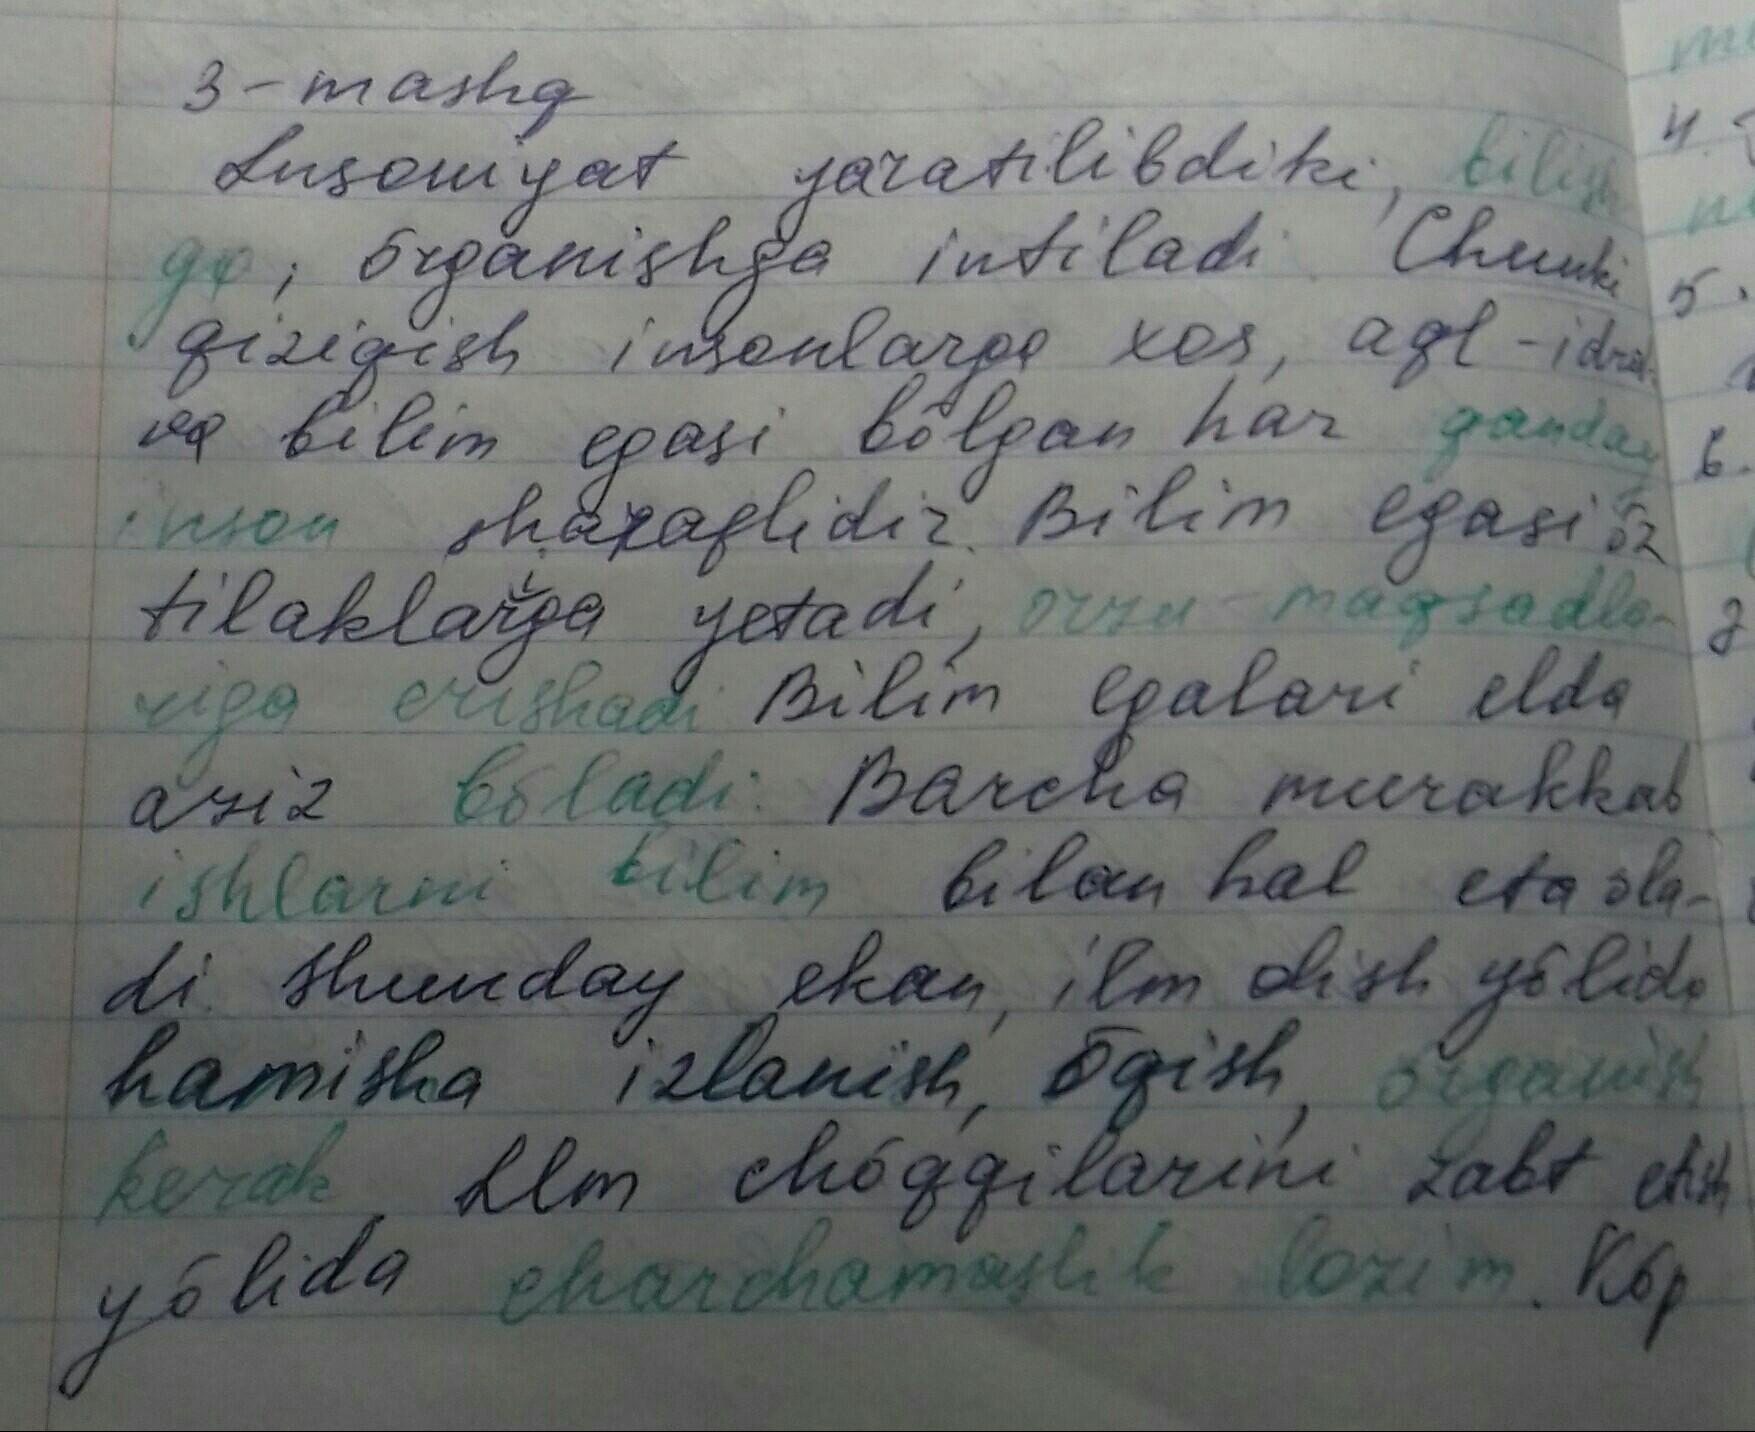 3-mashq
Insoniyat yaratilibdiki, bilish
ga, õrganishga intiladi. Chunki
qiziqish insonlarga xos, aql-idrok
va bilim egasi bõlgan har qanday
inson sharaflidir. Bilim egasi õz
tilaklarga yetadi, orzu-maqsadla-
riga erishadi Bilim egalari elda
aziz bõladi. Barcha murakkab
ishlarni bilim bilan hal eta ola-
di. Shunday ekan, ilm olish yõlida
hamisha izlanish, õqish, õrganish
kerak. Ilm chóqqilarini zabt etish
yõlida charchamaslik lozim. Kóp
4.
5.
6.